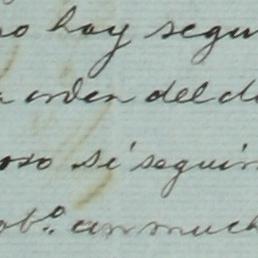 no hay segu
a orden del d
oso si seguir
ob.º aun much